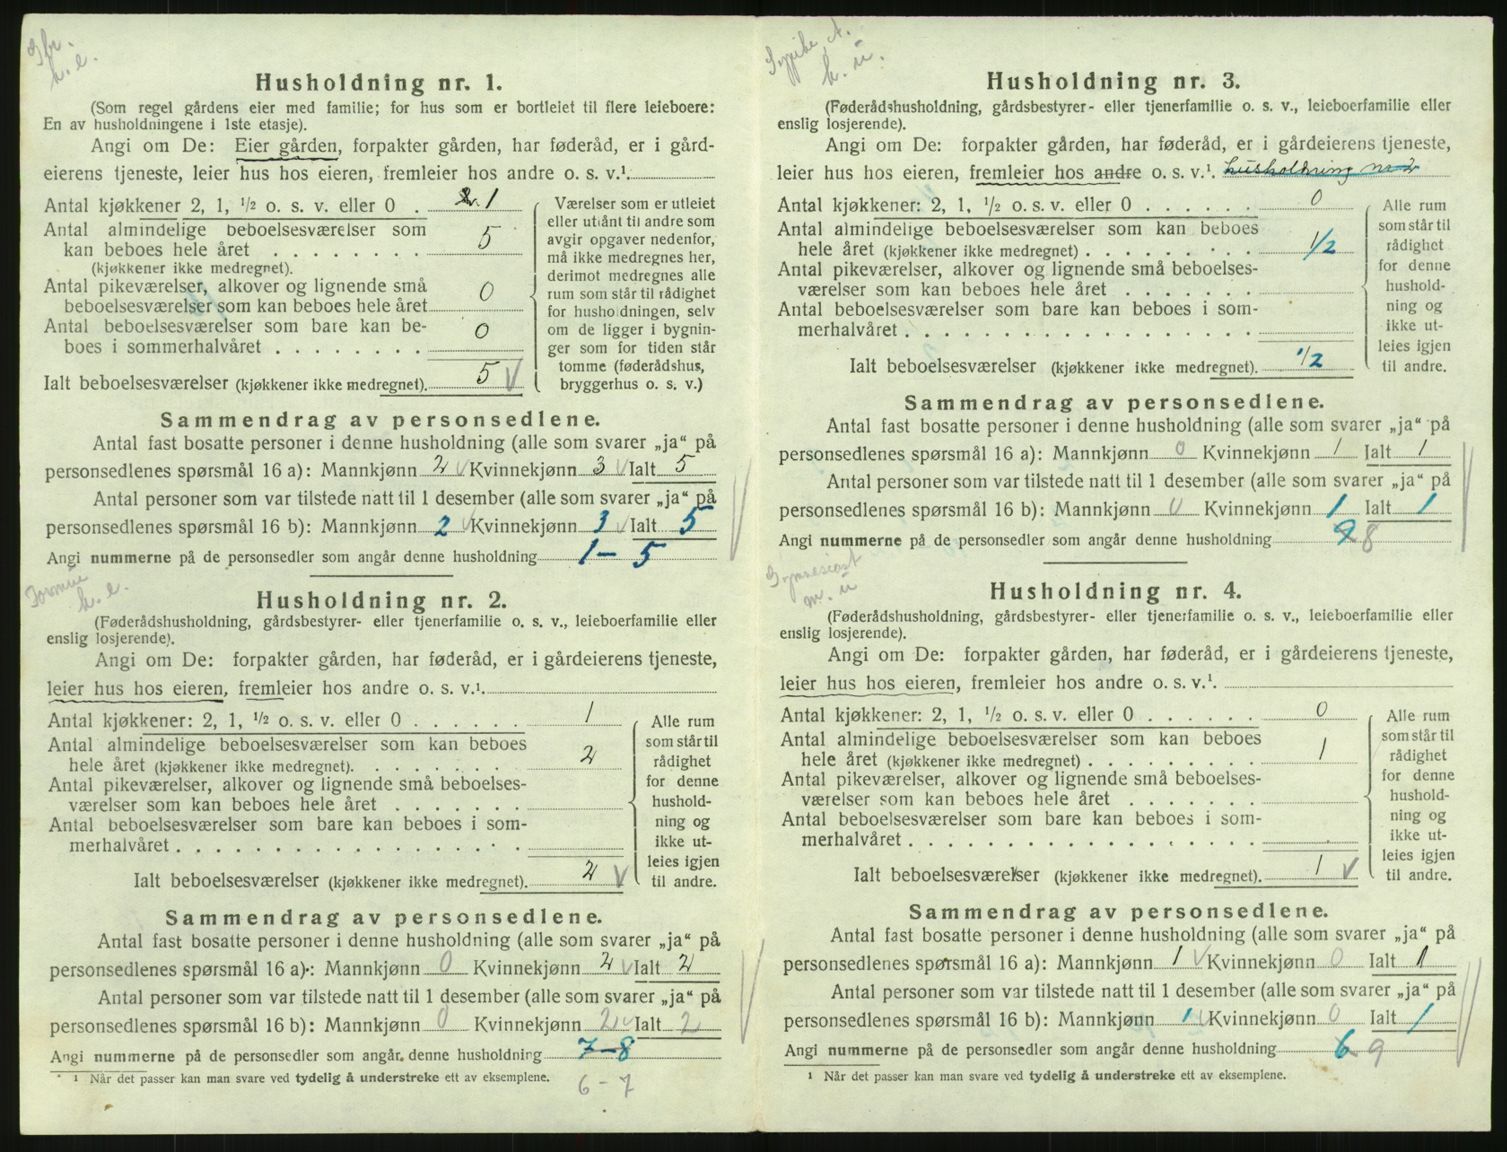 h. e.
Husholdning nr. 1.
(Som regel gårdens eier med familie; for hus som er bortleiet til flere leieboere:
En av husholdningene i 1ste etasje).
Angi om De: Eier gården, forpakter gården, har føderåd, er i gård-
eierens tjeneste, leier hus hos eieren, fremleier hos andre o. s. v.¹.
Antal kjøkkener 2, 1, ½ o. s. v. eller 0 . 1
Antal almindelige beboelsesværelser som
kan beboes hele året . . . . . . . . 5
(kjøkkener ikke medregnet).
Antal pikeværelser, alkover og lignende små
beboelsesværelser som kan beboes hele året 0
Antal beboelsesværelser som bare kan be-
boes i sommerhalvåret . . . . . . . . 0
Ialt beboelsesværelser (kjøkkener ikke medregnet). 5 V
Værelser som er utleiet
eller utlånt til andre som
avgir opgaver nedenfor,
må ikke medregnes her,
derimot medregnes alle
rum som står til rådighet
for husholdningen, selv
om de ligger i bygnin-
ger som for tiden står
tomme (føderådshus,
bryggerhus o. s. v.)
Sammendrag av personsedlene.
Antal fast bosatte personer i denne husholdning (alle som svarer „ja“ på
personsedlenes spørsmål 16 a): Mannkjønn 2 V Kvinnekjønn 3 V Ialt 5
Antal personer som var tilstede natt til 1 desember (alle som svarer „ja“ på
personsedlenes spørsmål 16 b): Mannkjønn 2 V Kvinnekjønn 3 V Ialt 5
Angi nummerne på de personsedler som angår denne husholdning 1 – 5
h. e.
Husholdning nr. 2.
(Føderådshusholdning, gårdsbestyrer- eller tjenerfamilie o. s. v., leieboerfamilie eller
enslig losjerende).
Angi om De: forpakter gården, har føderåd, er i gårdeierens tjeneste,
leier hus hos eieren, fremleier hos andre o. s. v.¹.
Antal kjøkkener: 2, 1, ½ o. s. v. eller 0 . . . . . . 1
Antal almindelige beboelsesværelser som kan beboes
hele året (kjøkkener ikke medregnet). . . . . . . . 2
Antal pikeværelser, alkover og lignende små beboelses-
værelser som kan beboes hele året . . . . . . .
Antal beboelsesværelser som bare kan beboes i som-
merhalvåret . . . . . . . . . . . . . . . . . .
Ialt beboelsesværelser (kjøkkener ikke medregnet). 2 V
Alle rum
som står til
rådighet
for denne
hushold-
ning og
ikke ut-
leies igjen
til andre.
Sammendrag av personsedlene.
Antal fast bosatte personer i denne husholdning (alle som svarer „ja“ på
personsedlenes spørsmål 16 a): Mannkjønn 0 Kvinnekjønn 2 V Ialt 2
Antal personer som var tilstede natt til 1 desember (alle som svarer „ja“ på
personsedlenes spørsmål 16 b): Mannkjønn 0 Kvinnekjønn 2 V Ialt 2
Angi nummerne på de personsedler som angår denne husholdning 7 – 8
¹ Når det passer kan man svare ved tydelig å understreke ett av eksemplene.
6 – 7
h. ü.
Husholdning nr. 3.
(Føderådshusholdning, gårdsbestyrer- eller tjenerfamilie o. s. v., leieboerfamilie eller
enslig losjerende).
Angi om De: forpakter gården, har føderåd, er i gårdeierens tjeneste,
leier hus hos eieren, fremleier hos andre o. s. v.¹. husholdning nr 2
Antal kjøkkener: 2, 1, ½ o. s. v. eller 0 . . . . . . 0
Antal almindelige beboelsesværelser som kan beboes
hele året (kjøkkener ikke medregnet) . . . . . . . . . 1/2
Antal pikeværelser, alkover og lignende små beboelses-
værelser som kan beboes hele året . . . . . . .
Antal beboelsesværelser som bare kan beboes i som-
merhalvåret . . . . . . . . . . . . . . . . . .
Ialt beboelsesværelser (kjøkkener ikke medregnet). 1/2
Alle rum
som står til
rådighet
for denne
hushold-
ning og
ikke ut-
leies igjen
til andre.
Sammendrag av personsedlene.
Antal fast bosatte personer i denne husholdning (alle som svarer „ja“ på
personsedlenes spørsmål 16 a): Mannkjønn 0 Kvinnekjønn 1 Ialt 1
Antal personer som var tilstede natt til 1 desember (alle som svarer „ja“ på
personsedlenes spørsmål 16 b): Mannkjønn 0 Kvinnekjønn 1 Ialt 1
Angi nummerne på de personsedler som angår denne husholdning 9 8
Gymnasiast
m. ü
Husholdning nr. 4.
(Føderådshusholdning, gårdsbestyrer- eller tjenerfamilie o. s. v., leieboerfamilie eller
enslig losjerende).
Angi om De: forpakter gården, har føderåd, er i gårdeierens tjeneste,
leier hus hos eieren, fremleier hos andre o. s. v.¹.
Antal kjøkkener: 2, 1, ½ o. s. v. eller 0 . . . . . . 0
Antal almindelige beboelsesværelser som kan beboes
hele året (kjøkkener ikke medregnet) . . . . . . . . . 1
Antal pikeværelser, alkover og lignende små beboelses-
værelser som kan beboes hele året . . . . . . .
Antal beboelsesværelser som bare kan beboes i som-
merhalvåret . . . . . . . . . . . . . . . . . .
Ialt beboelsesværelser (kjøkkener ikke medregnet). 1 V
Alle rum
som står til
rådighet
for denne
hushold-
ning og
ikke ut-
leies igjen
til andre.
Sammendrag av personsedlene.
Antal fast bosatte personer i denne husholdning (alle som svarer „ja“ på
personsedlenes spørsmål 16 a): Mannkjønn 1 V Kvinnekjønn 0 Ialt 1
Antal personer som var tilstede natt til 1 desember (alle som svarer „ja“ på
personsedlenes spørsmål 16 b): Mannkjønn 1 V Kvinnekjønn 0 Ialt 1
Angi nummerne på de personsedler som angår denne husholdning 6 9
¹ Når det passer kan man svare ved tydelig å understreke ett av eksemplene.